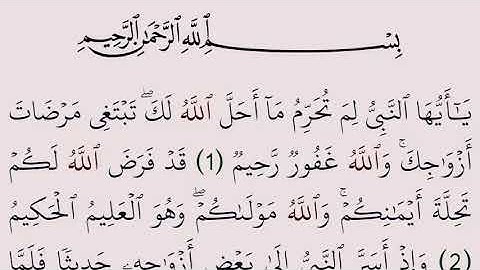 بِسۡمِ ٱللَّهِ ٱلرَّحۡمَٰنِ ٱلرَّحِيمِ
يَـٰٓأَيُّهَا ٱلنَّبِىُّ لِمَ تُحَرِّمُ مَآ أَحَلَّ ٱللَّهُ لَكَۖ تَبۡتَغِى مَرۡضَاتَ
أَزۡوَٰجِكَۚ وَٱللَّهُ غَفُورٌ رَّحِيمٌ (1) قَدۡ فَرَضَ ٱللَّهُ لَكُمۡ
تَحِلَّةَ أَيۡمَـٰنِكُمۡۚ وَٱللَّهُ مَوۡلَىٰكُمۡۖ وَهُوَ ٱلۡعَلِيمُ ٱلۡحَكِيمُ
(2) وَإِذۡ أَسَرَّ ٱلنَّبِىُّ إِلَىٰ بَعۡضِ أَزۡوَٰجِهِۦ حَدِيثًا فَلَمَّا